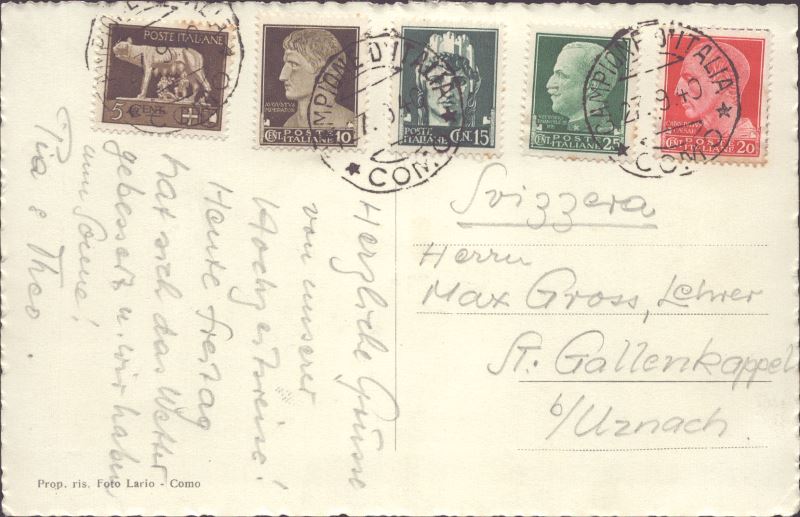 POSTE ITALIANE
5 CENT.
AVGVSTVS
IMPERATOR
CENT. POSTE ITALIANE 10
POSTE ITALIANE CEN. 15
CENT. POSTE ITALIANE 25
CENT. POSTE ITALIANE 20
CAMPIONE D'ITALIA
★ COMO ★
CAMPIONE D'ITALIA
27.9.40
★ COMO ★
Herzliche Grüsse
von unserer
Hochzeitsreise!
Heute Freitag
hat sich das Wetter
gebessert u. wir haben
nun Sonne!
Pia & Theo.
Svizzera
Herrn
Max Gross, Lehrer
St. Gallenkappel
b/Uznach
Prop. ris. Foto Lario - Como